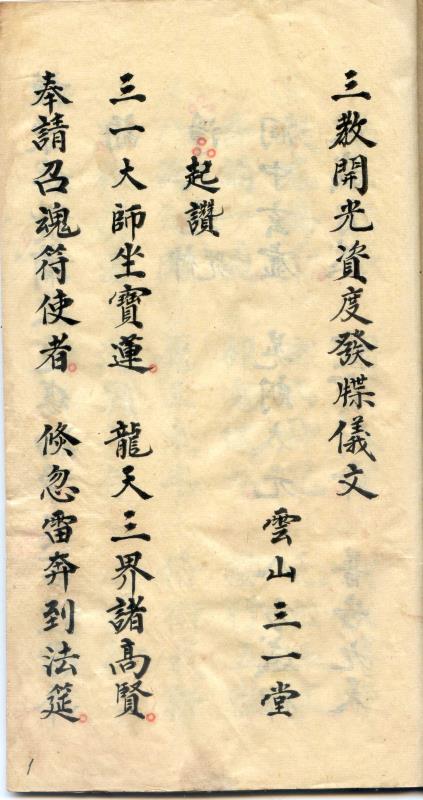 三教開光資度發牒儀文
雲山三一堂
起讚
三一大師坐寶蓮。 龍天三界諸高賢。
奉請召魂符使者。 倐忽雷奔到法筵。
1